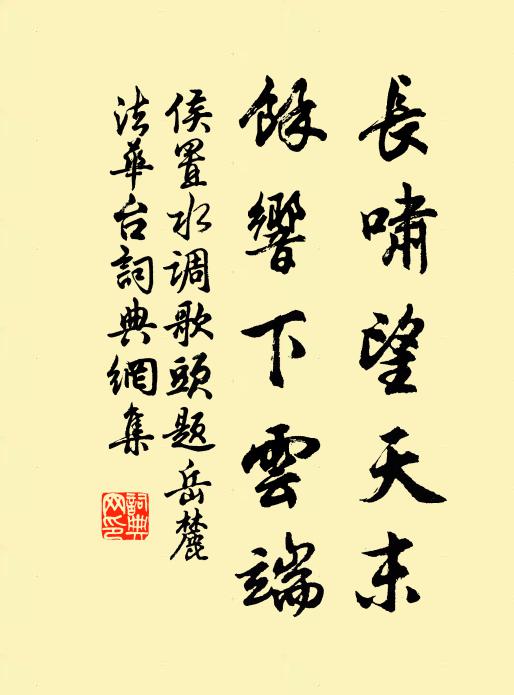 長嘯望天末
餘響下雲端
侯置水调歌頭题岳麓
法華台詞典網集
詞典
网印